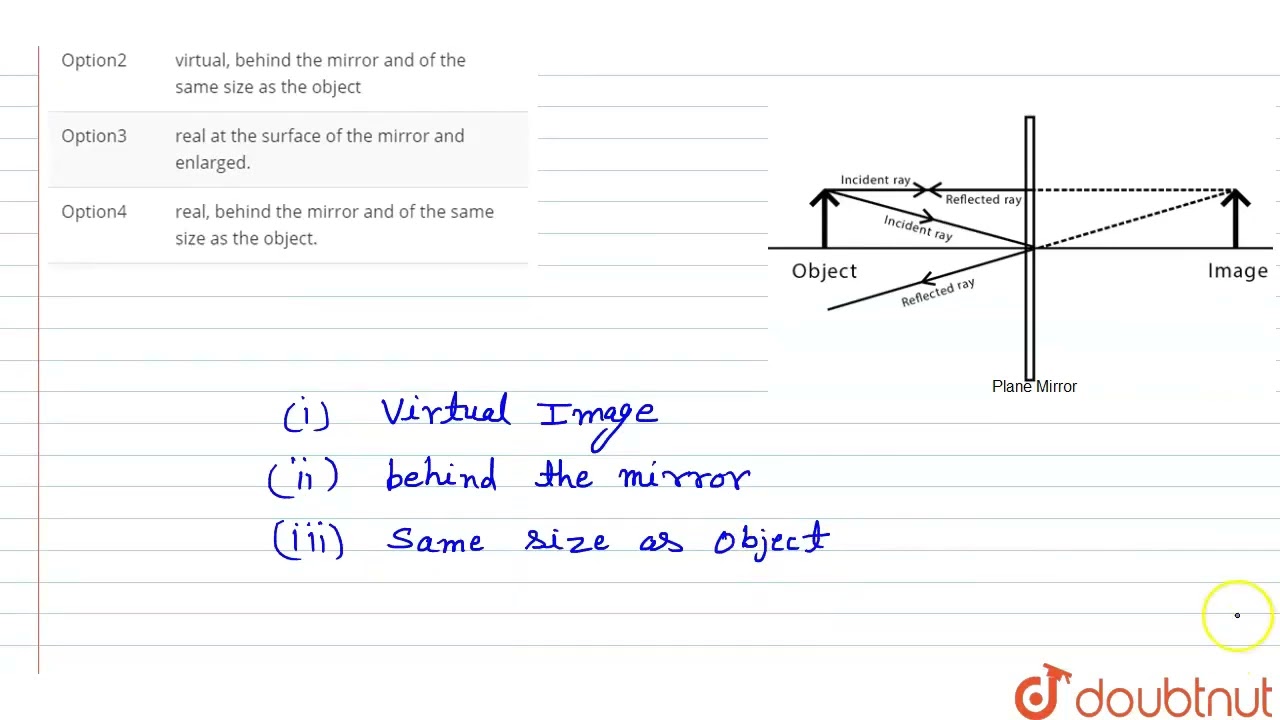 Option2 virtual, behind the mirror and of the
same size as the object
Option3 real at the surface of the mirror and
enlarged.
Option4 real, behind the mirror and of the same
size as the object.
Incident ray
Reflected ray
Incident ray
Object
Image
Reflected ray
Plane Mirror
(i) Virtual Image
(ii) behind the mirror
(iii) Same size as object
doubtnut